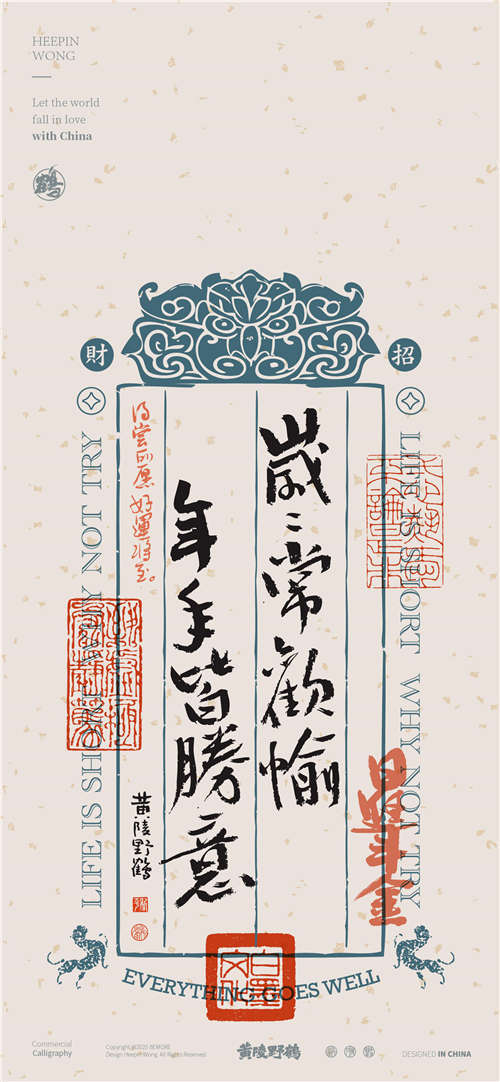 HEEPIN
WONG
Let the world
fall in love
with China
鶴
財
招
歲:常歡愉
年年皆勝意
得嘗所愿 好運將至。
黄陵野鶴
日興斗金
LIFE IS SHORT WHY NOT TRY
LIFE IS SHORT WHY NOT TRY
EVERYTHING GOES WELL
Commercial
Calligraphy
Design Heepin Wong. All Rights Reserved
黃陵野鶴
DESIGNED IN CHINA